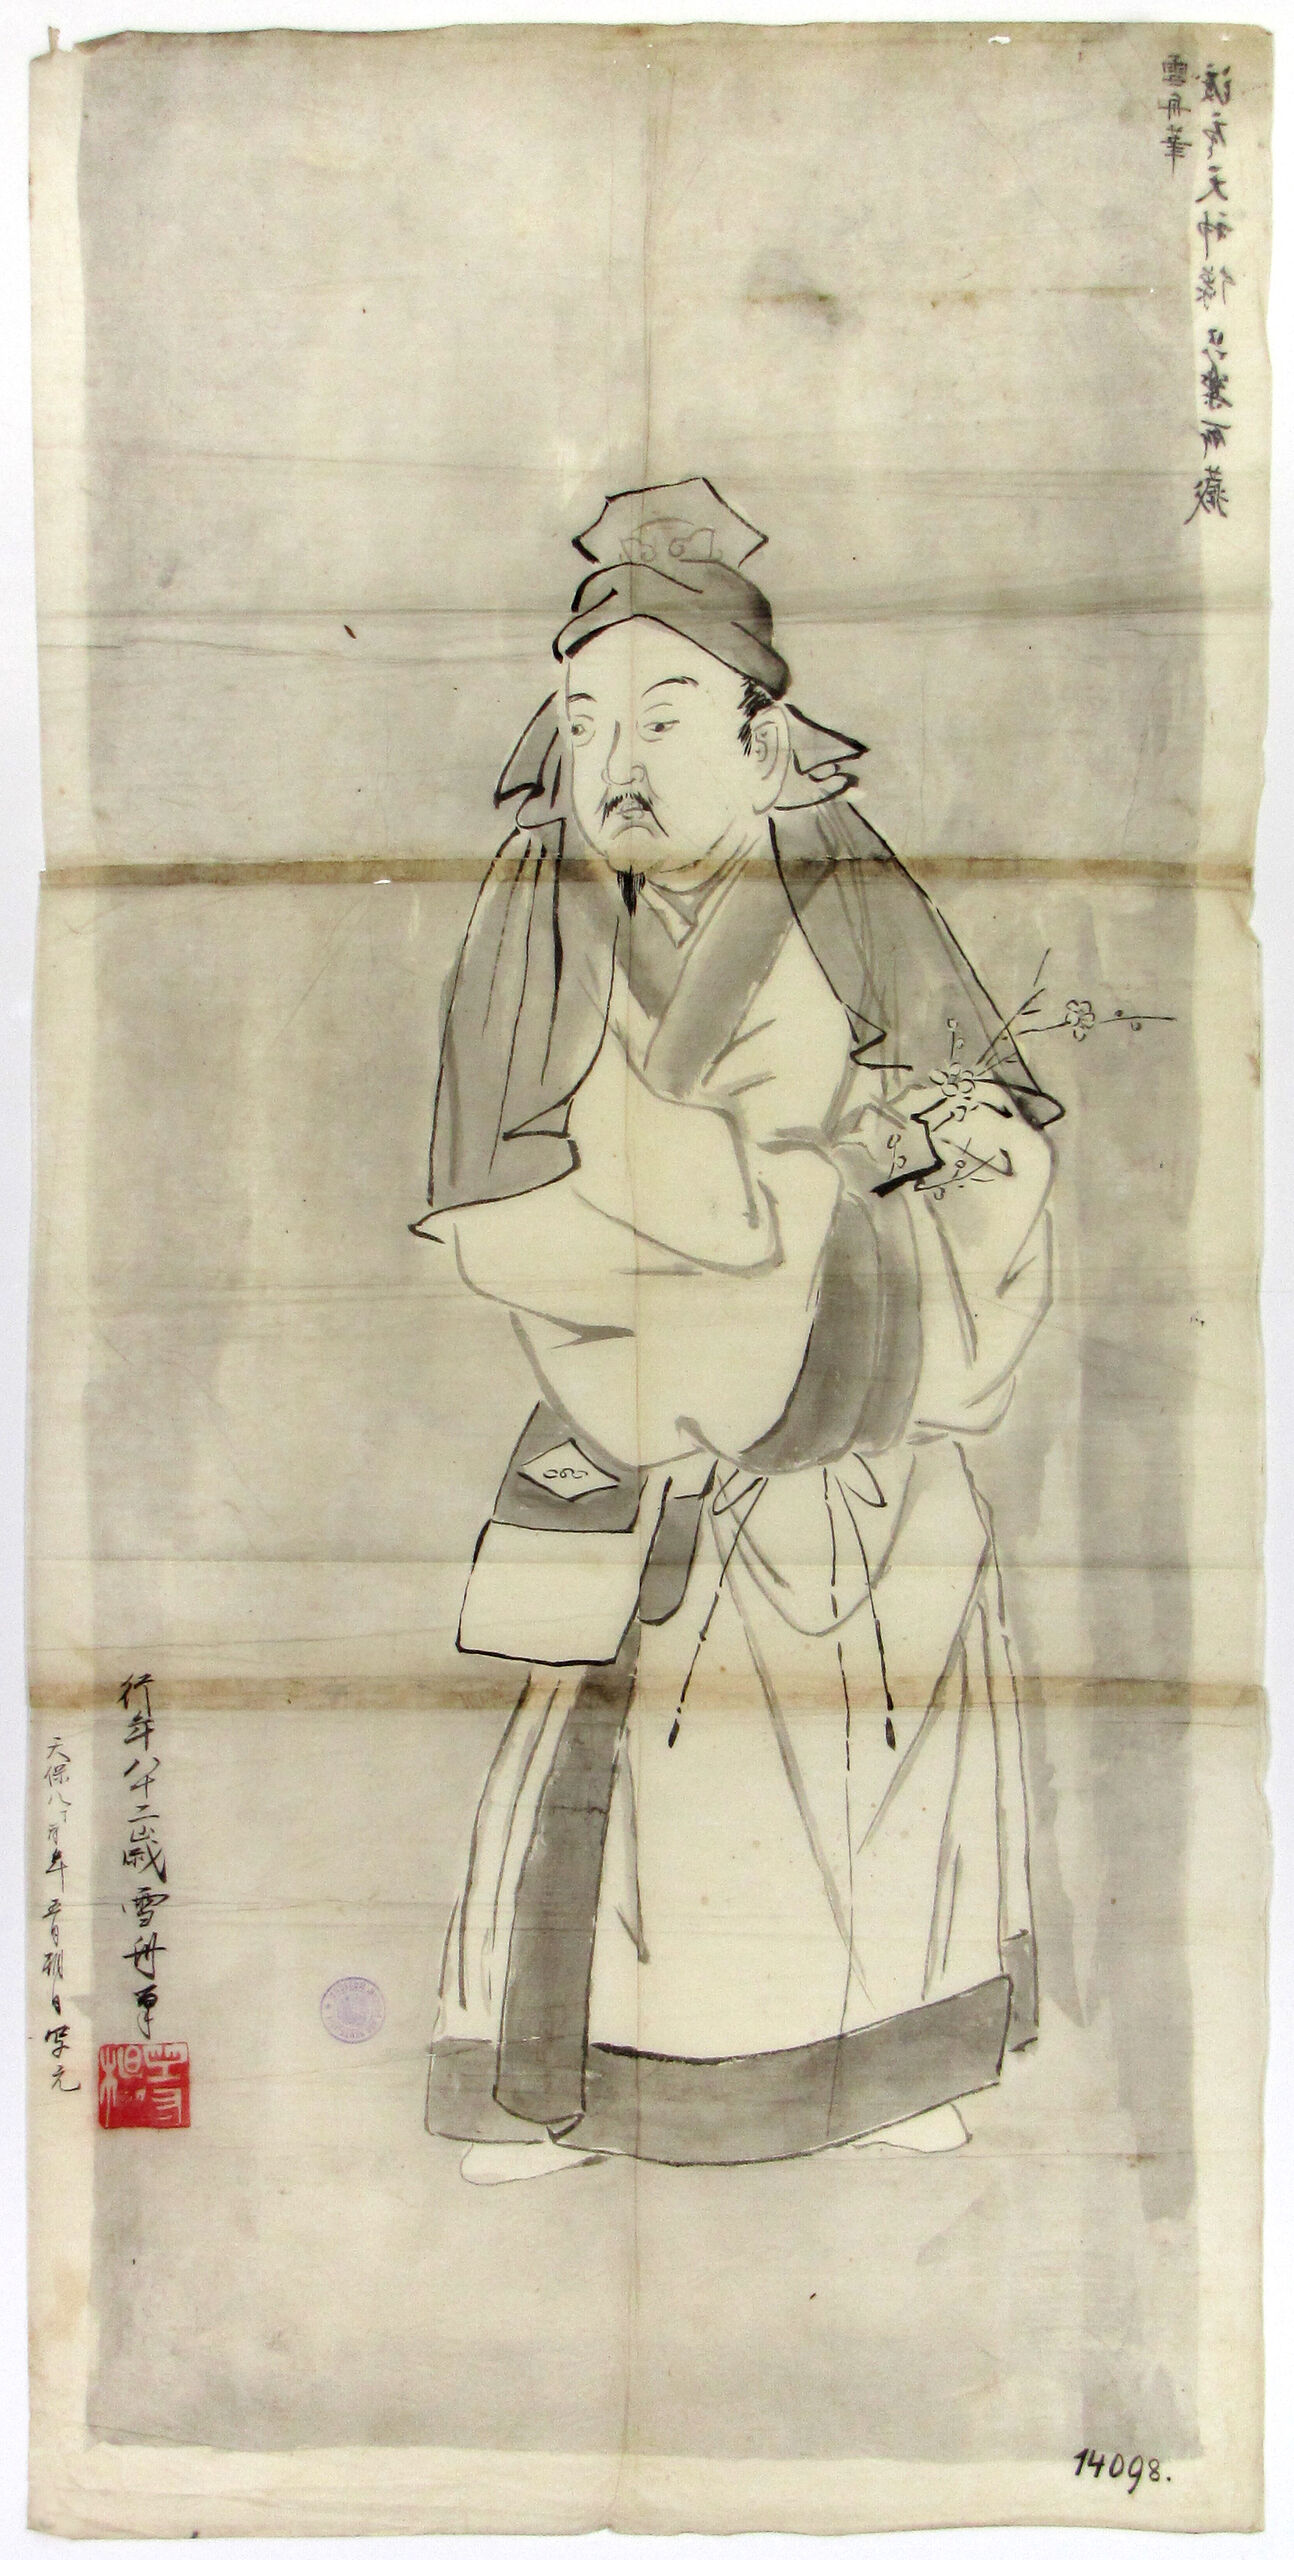 渡唐天神像 以楽所蔵
雪舟筆
行年八十二歳雪舟筆
天保八丁酉年 五月朔日 写之
14098.